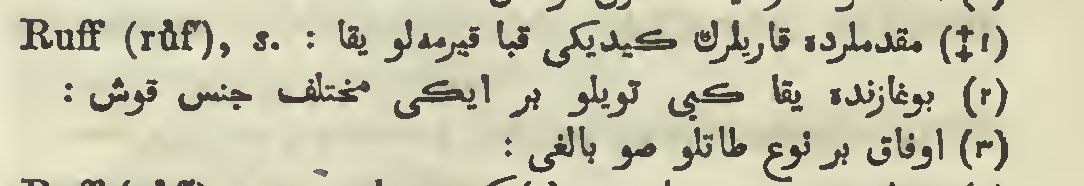 Ruff (rŭf), s. (‡١) مقدملرده قاریلرك كیدیكی قبا قیرمه‌لو یقا :
(٢) بوغازنده یقا كبی تویلو بر ایكی مختلف جنس قوش :
(٣) اوفاق بر نوع طاتلو صو بالغی :